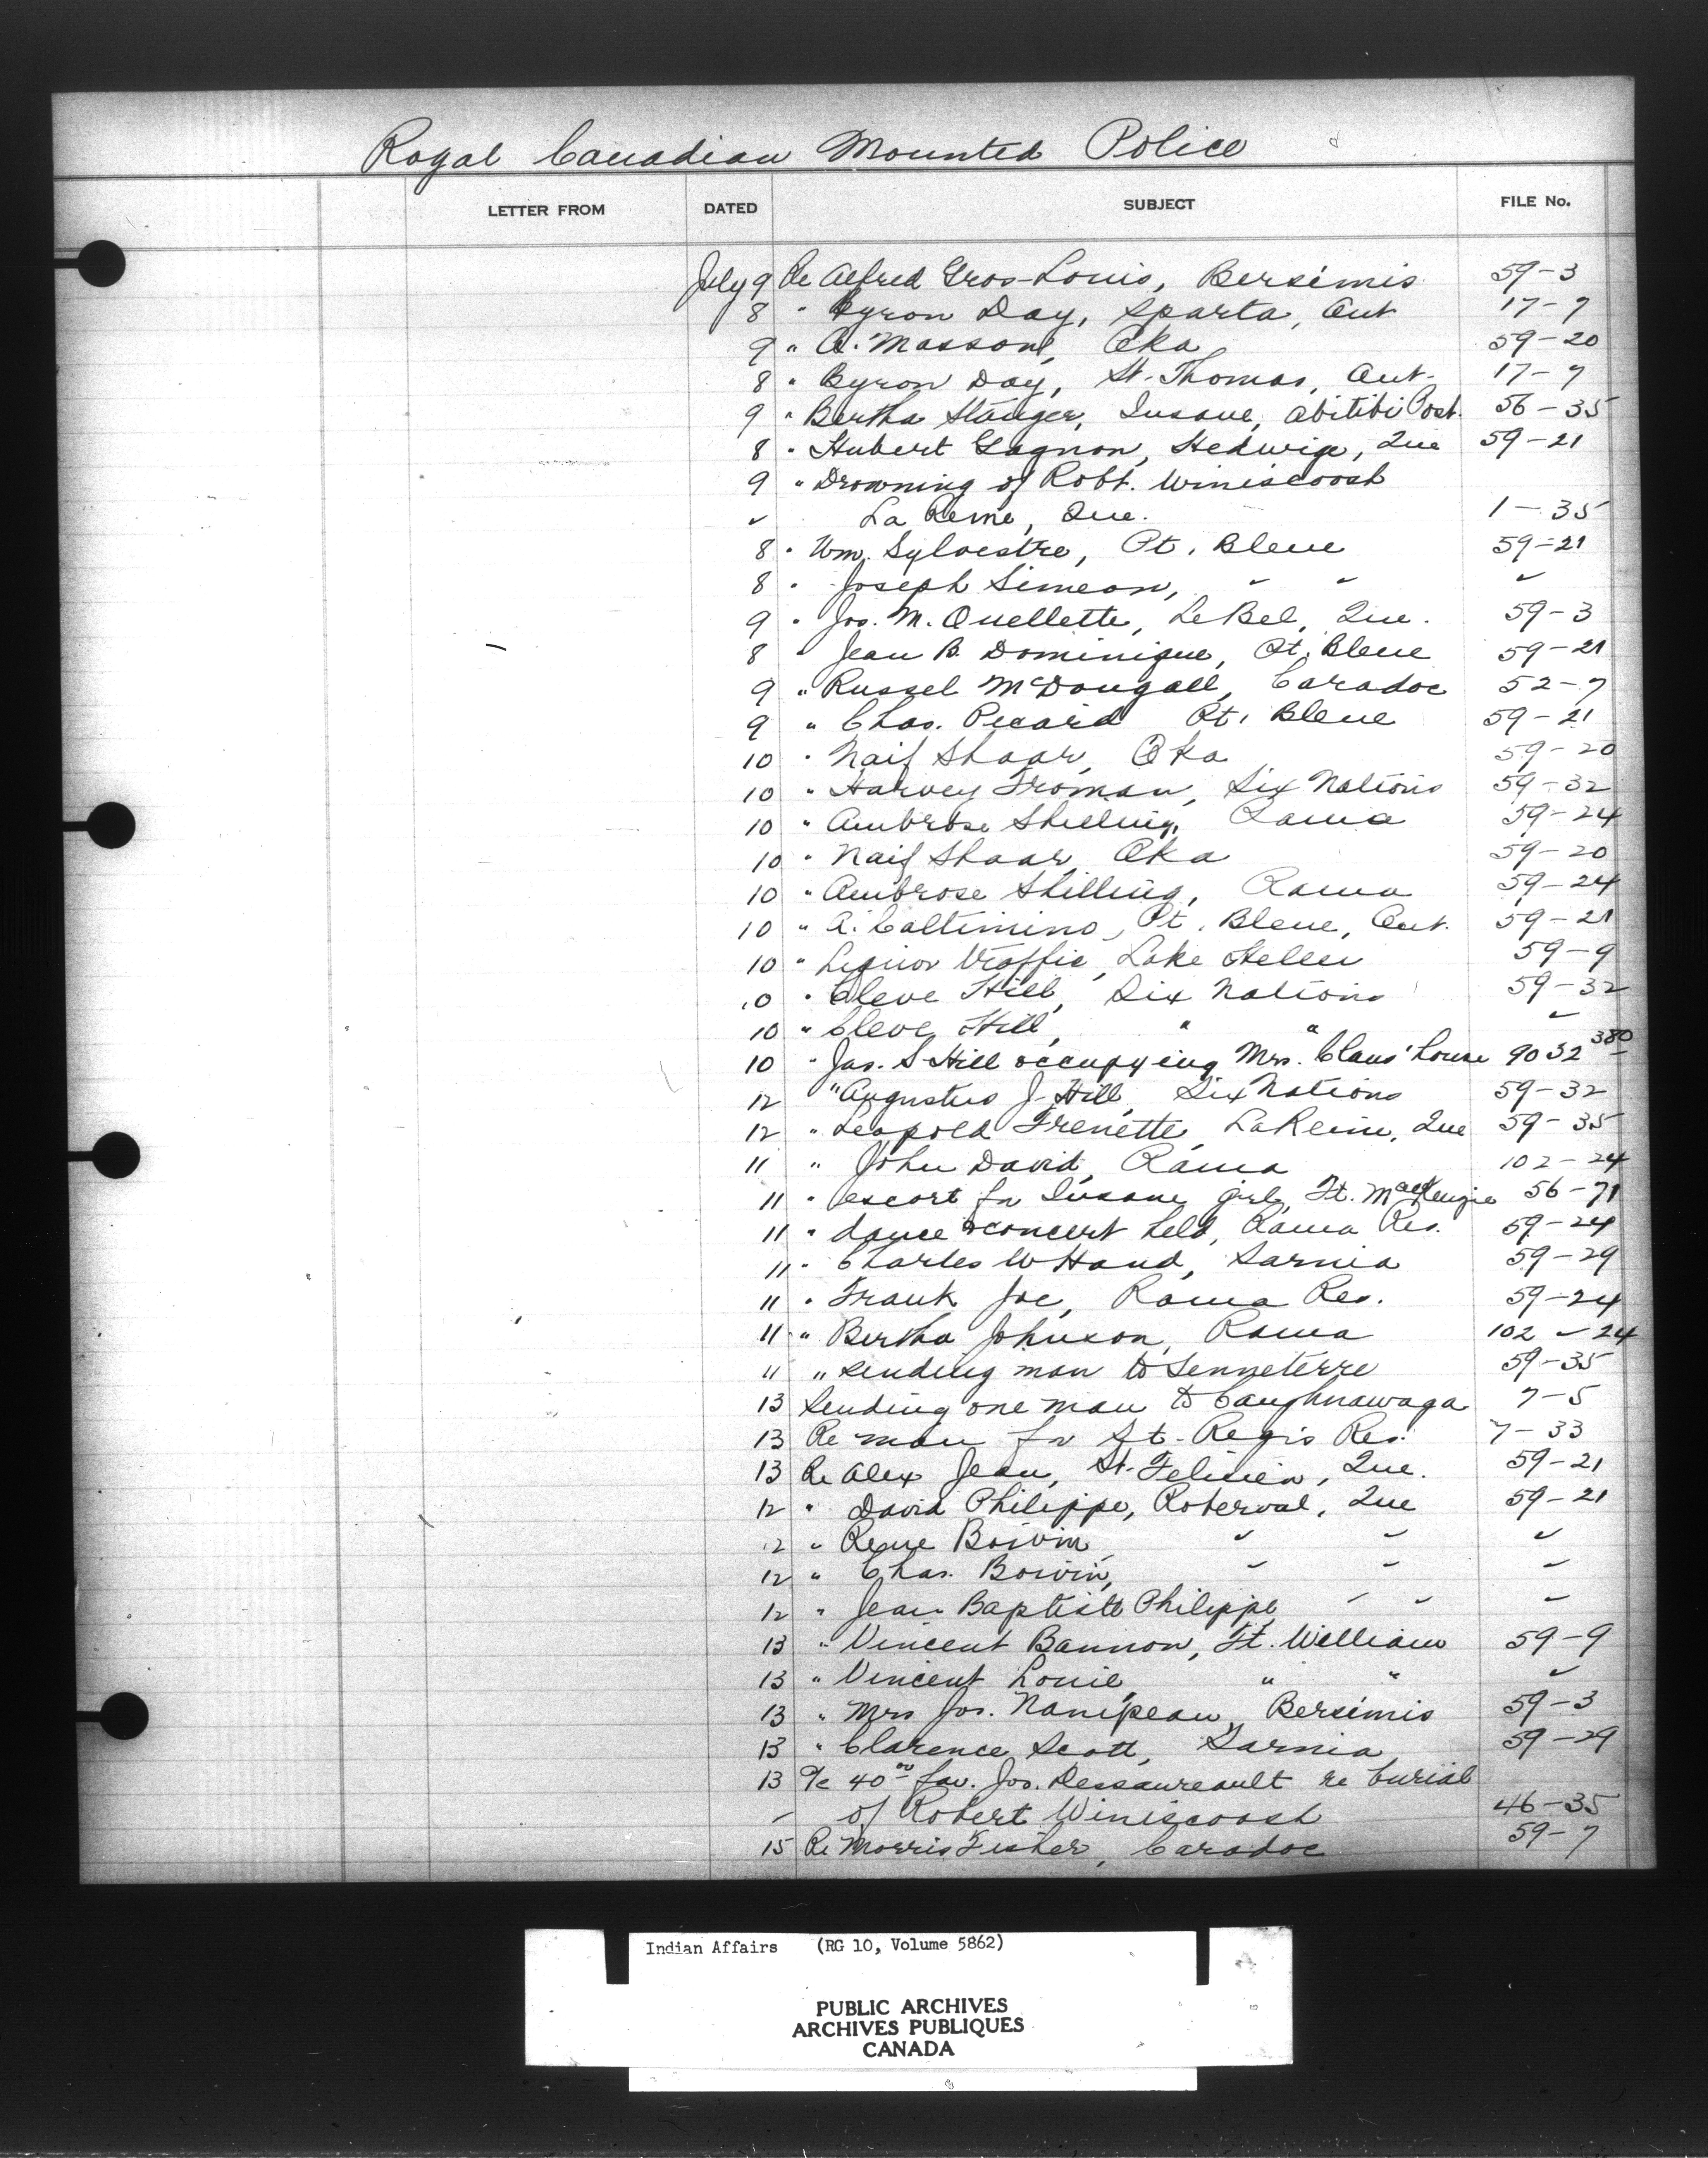 Royal Canadian Mounted Police
LETTER FROM DATED SUBJECT FILE No.
July 9 Re Alfred Gros-Louis, Bersimis 59-3
8 " Byron Day, Sparta, Ont 17-7
9 " A. Masson, Oka 59-20
8 " Byron Day, St. Thomas, Ont. 17-7
9 " Bertha Stanger, Insane, Abitibi Post. 56-35
8 " Hubert Gagnon, Hedwige, Que 59-21
9 " Drowning of Robt. Winiscoosh
" La Reine, Que. 1-35
8 " Wm. Sylvestre, Pt. Bleue 59-21
8 " Joseph Simeon, " " "
9 " Jos. M. Ouellette, LeBel, Que. 59-3
8 " Jean B. Dominique, Pt. Bleue 59-21
9 " Russel McDougall, Caradoc 52-7
9 " Chas. Picard Pt. Bleue 59-21
10 " Naif Shaar, Oka 59-20
10 " Harvey Froman, Six Nations 59-32
10 " Ambrose Shilling, Rama 59-24
10 " Naif Shaar, Oka 59-20
10 " Ambrose Shilling, Rama 59-24
10 " A. Caltimino, Pt. Bleue, Ont. 59-21
10 " Liquor Traffic, Lake Helen 59-9
10 " Cleve Hill, Six Nations 59-32
10 " Cleve Hill, " " "
10 " Jas. S. Hill occupying Mrs. Claus' house 9032 380
12 " Augustus J. Hill, Six Nations 59-32
12 " Leopold Frenette, LaReine, Que 59-35
11 " John David, Rama 102-24
11 " escort for Insane girl, Ft. MacKenzie 56-71
11 " dance & concert held, Rama Res. 59-24
11 " Charles W Hand, Sarnia 59-29
11 " Frank Joe, Rama Res. 59-24
11 " Bertha Johnson, Rama 102-24
11 " sending man to Senneterre 59-35
13 Sending one man to Caughnawaga 7-5
13 Re man for St. Regis Res. 7-33
13 Re Alex Jean, St. Felicien, Que. 59-21
12 " David Philippe, Roberval, Que 59-21
12 " Rene Boivin " " "
12 " Chas. Boivin, " " "
12 " Jean Baptiste Philippe, " " "
13 " Vincent Bannon, Ft. William 59-9
13 " Vincent Louie, " " "
13 " Mrs Jos. Nanipeau, Bersimis 59-3
13 " Clarence Scott, Sarnia, 59-29
13 a/c 40.00 fav. Jos. Dessaureault re burial
" of Robert Winiscoosh 46-35
15 Re Morris Fisher, Caradoc 59-7
Indian Affairs (RG 10, Volume 5862)
PUBLIC ARCHIVES
ARCHIVES PUBLIQUES
CANADA